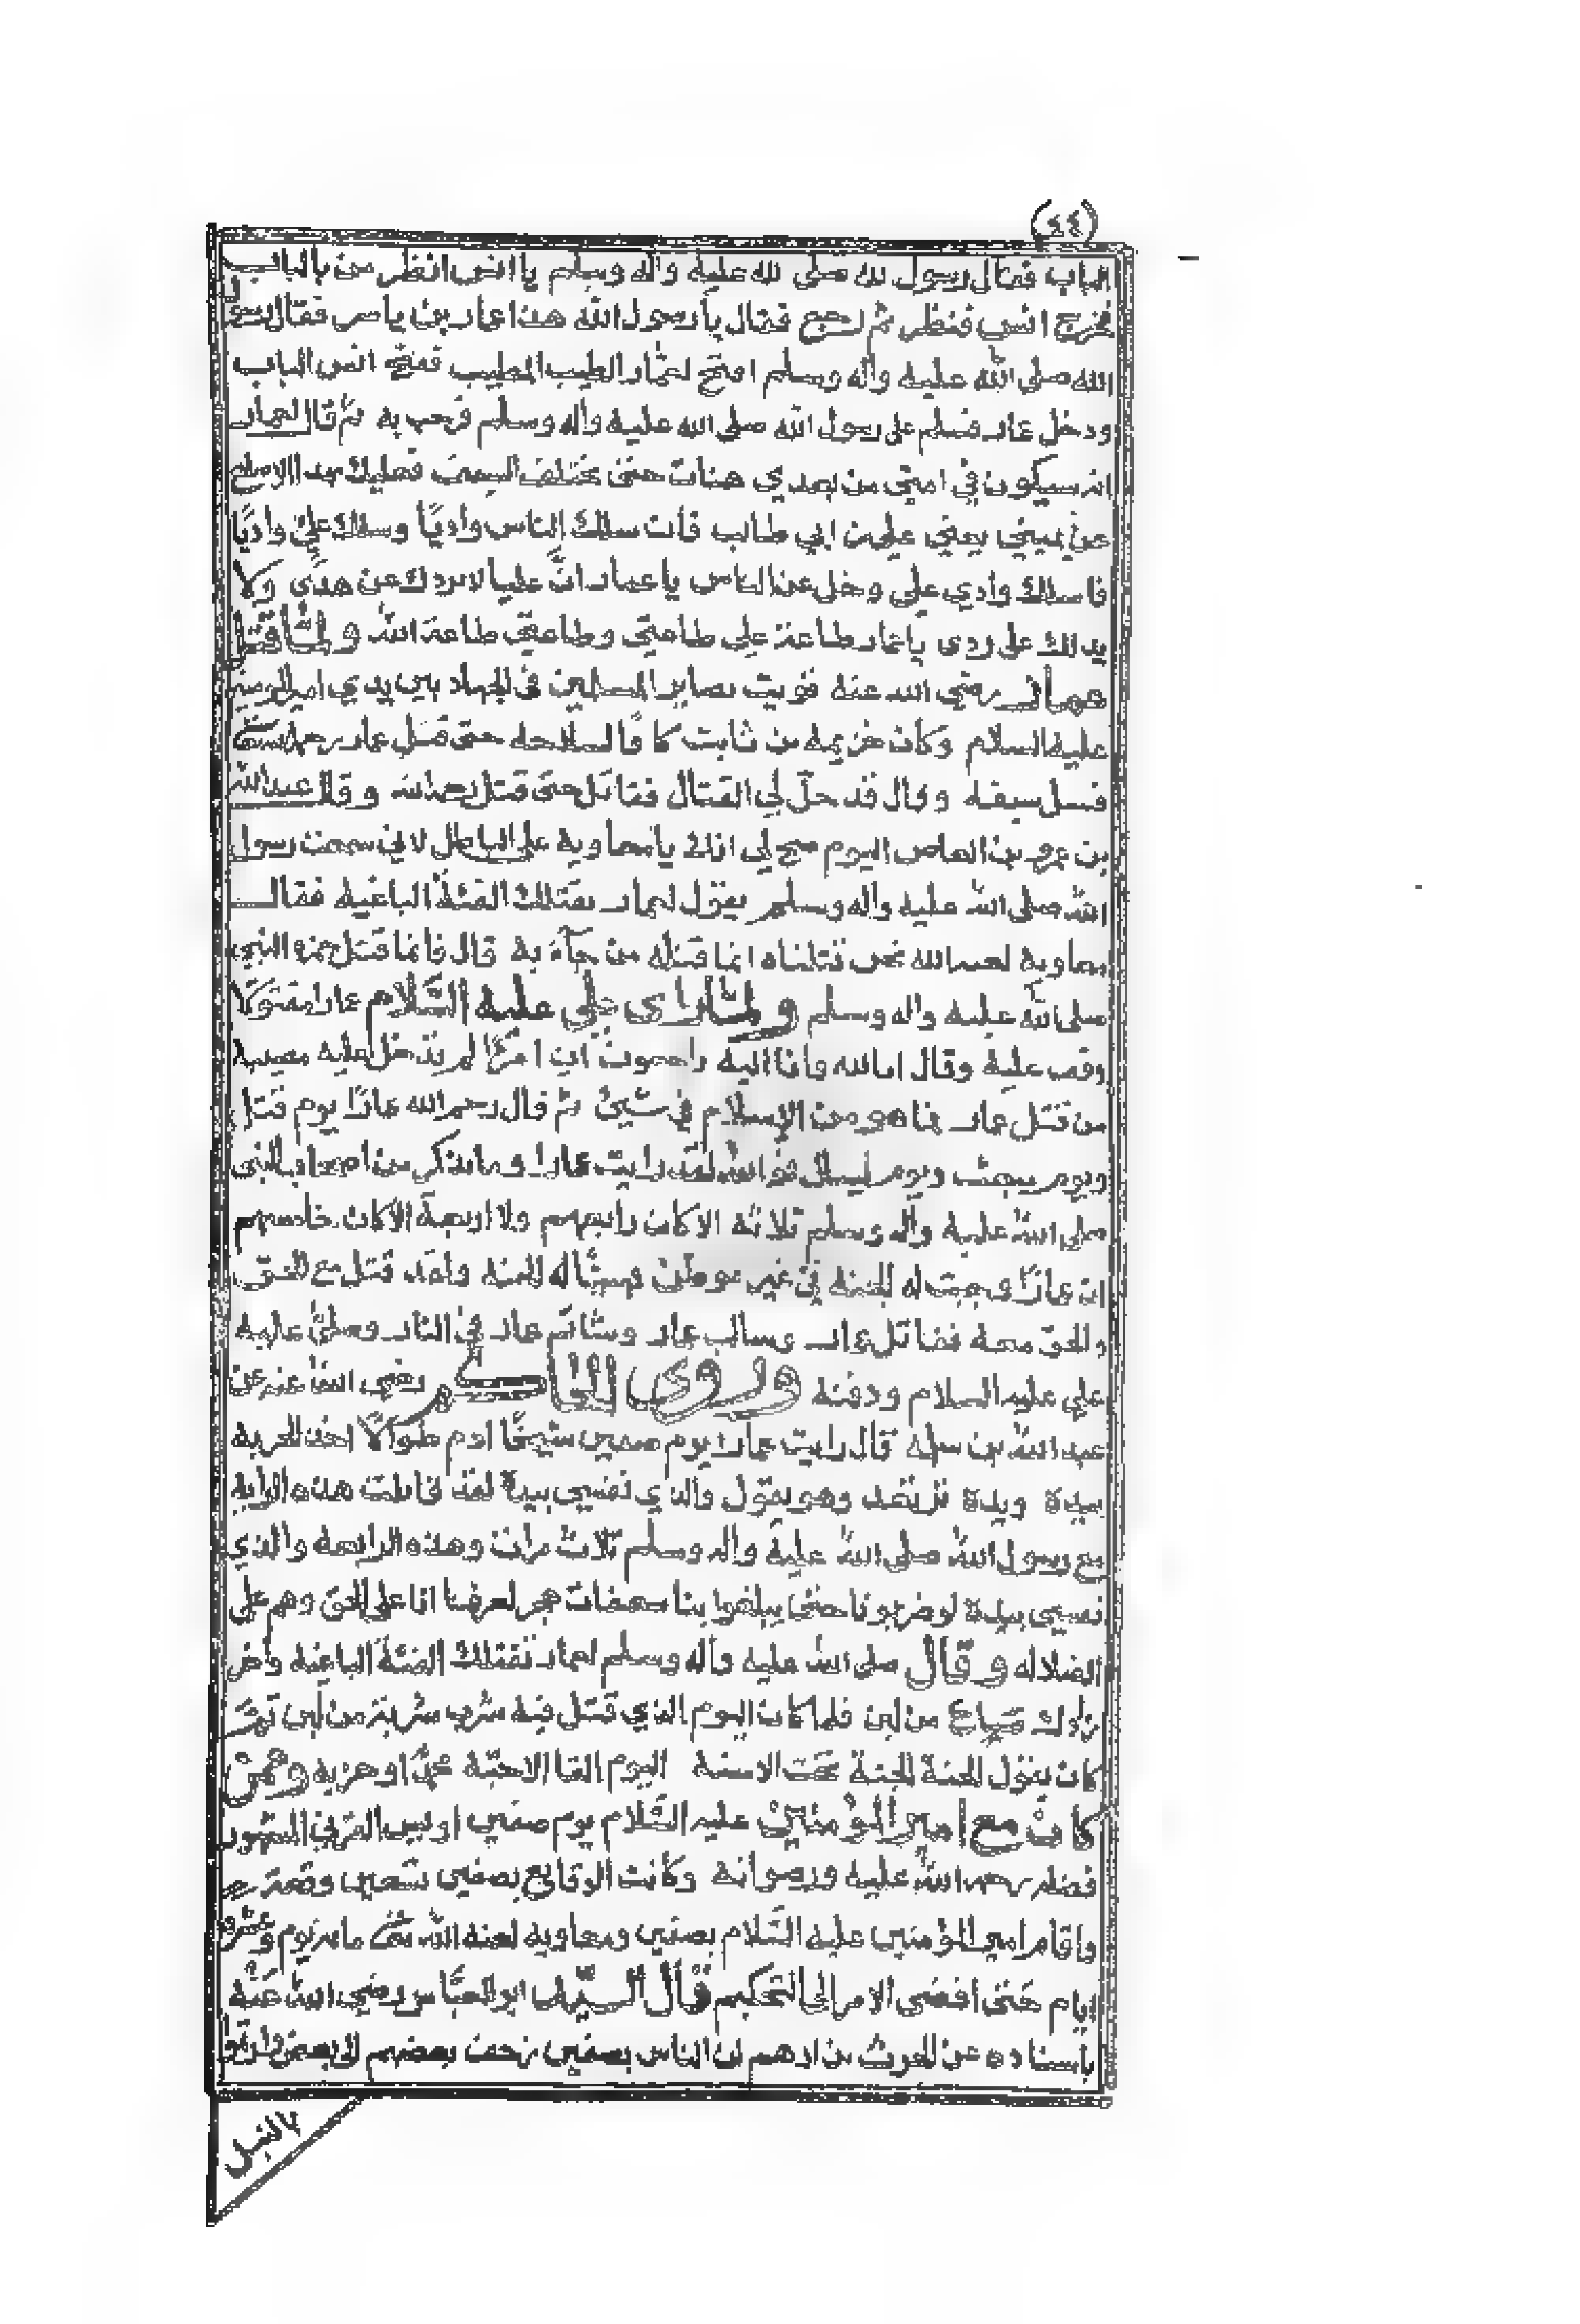 (٤٤)
الباب فقال رسول الله صلى الله عليه وآله وسلم يا انس انظر من بالباب
فخرج انس فنظر ثم رجع فقال يا رسول الله هذا عمار بن ياسر فقال رسول
الله صلى الله عليه وآله وسلم افتح لعمار الطيب المطيب ففتح انس الباب
ودخل عمار فسلم على رسول الله صلى الله عليه وآله وسلم فرحب به ثم قال لعمار
انه سيكون في امتي من بعدي هنات حتى يختلف السيف فعليك بهذا الاصلع
عن يميني يعني علي بن ابي طالب فان سلك الناس واديًا وسلك علي واديًا
فاسلك وادي علي وخل عن الناس يا عمار ان عليا لا يردك عن هدى ولا
يدلك على ردى يا عمار طاعة علي طاعتي وطاعتي طاعة الله ولما قتل
عمار رضي الله عنه قويت بصاير المسلمين في الجهاد بين يدي امير المؤمنين
عليه السلام وكان خزيمة بن ثابت كافًا سلاحه حتى قتل عمار
فسل سيفه وقال قد حل لي القتال فقاتل حتى قتل رحمه الله وقال عبد الله
بن عمرو بن العاص اليوم صح لي انك يا معاوية على الباطل لاني سمعت رسول
الله صلى الله عليه وآله وسلم يقول لعمار تقتلك الفئة الباغية فقال
معاوية لعنه الله نحن قتلناه انما قتله من جاء به قال فانما قتل حمزه النبي
صلى الله عليه وآله وسلم ولما راى علي عليه السلام عمارا مقتولا
وقف عليه وقال انا لله وانا اليه راجعون ان امرًا لم يدخل عليه مصيبة
من قتل عمار فما هو من الاسلام في شيئ ثم قال رحم الله عمارًا يوم قتل
ويوم يبعث ويوم يسأل فوالله لقد رايت عمارا وما يذكر من اصحاب النبي
صلى الله عليه وآله وسلم ثلاثة الا كان رابعهم ولا اربعة الا كان خامسهم
ان عمارًا وجبت له الجنة في غير موطن وهنيئا له الجنة ولقد قتل مع الحق
والحق معه فقاتل عمار وسالب عمار وشاتم عمار في النار وصلى عليه
علي عليه السلام ودفنه وروى الحاكم رضي الله عنه عن
عبد الله بن سلمه قال رايت عمار يوم صفين شيخًا ادم طوالًا اخذ الحربة
بيده ويده ترتعد وهو يقول والذي نفسي بيده لقد قاتلت هذه الراية
مع رسول الله صلى الله عليه وآله وسلم ثلاث مرات وهذه الرابعة والذي
نفسي بيده لو ضربونا حتى يبلغوا بنا سعفات هجر لعرفنا انا على الحق وهم على
الضلاله وقال صلى الله عليه وآله وسلم لعمار تقتلك الفئة الباغية وآخر
زادك صياع من لبن فلما كان اليوم الذي قتل فيه شرب شربة من لبن ثم
كان يقول الجنة الجنة تحت الاسنة اليوم القا الاحبة محمدًا وحزبه وممن
كان مع امير المؤمنين عليه السلام يوم صفين اويس القرني المشهور
فضله رحمه الله عليه ورضوانه وكانت الوقايع بصفين تسعين وقعة
واقام امير المؤمنين عليه السلام بصفين ومعاوية لعنه الله مائة يوم وعشرة
ايام حتى افضى الامر الى التحكيم قال السيد ابو العباس رضي الله عنه
باسناده عن الحرث بن ادهم ان الناس بصفين زحف بعضهم الى بعض وارتموا
بالنبل